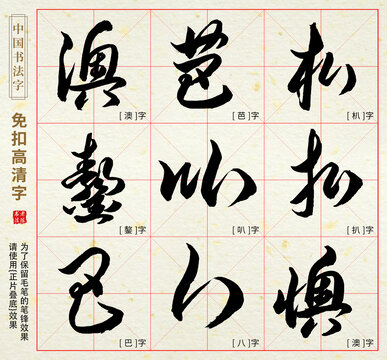 中国书法字
免扣高清字
为了保留毛笔的笔锋效果
请使用[正片叠底]效果
澳 芭 朳
[澳]字 [芭]字 [朳]字
鏊 叭 扒
[鏊]字 [叭]字 [扒]字
巴 八 懊
[巴]字 [八]字 [澳]字